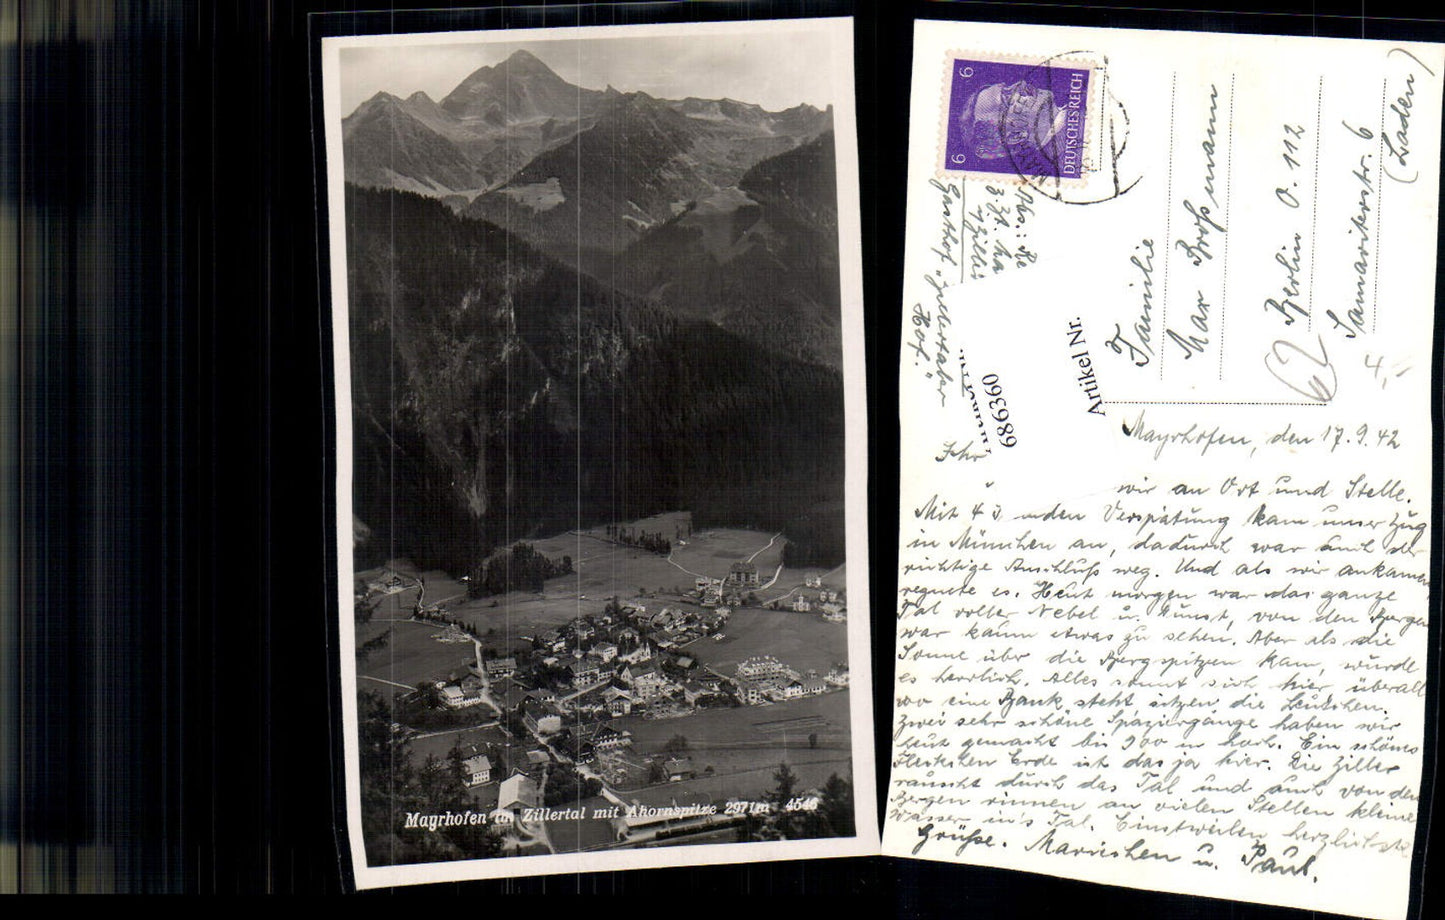 Mayrhofen im Zillertal mit Ahornspitze 2971m 4546
6
6
DEUTSCHES REICH
Gasthof "Zillertaler
Hof."
Artikel Nr.
686360
Familie
Max Großmann
Berlin O. 112
Samariterstr. 6
(Laden)
4,-
62
Mayrhofen, den 17.9.42
wir an Ort und Stelle.
Mit 4 Verspätung kam unser Zug
in München an, dadurch war auch der
richtige Anschluß weg. Und als wir ankamen
regnete es. Heut morgen war das ganze
Tal voller Nebel u. Dunst, von den Bergen
war kaum etwas zu sehen. Aber als die
Sonne über die Bergspitzen kam, wurde
es herrlich. Alles sonnt sich hier, überall
wo eine Bank steht sitzen die Leutchen.
Zwei sehr schöne Spaziergänge haben wir
heut gemacht bis 900 m hoch. Ein schönes
Fleckchen Erde ist das ja hier. Die Ziller
rauscht durch das Tal und auch von den
Bergen rinnen an vielen Stellen kleine
Wasser in's Tal. Einstweilen herzlichste
Grüße. Mariechen u. Paul.